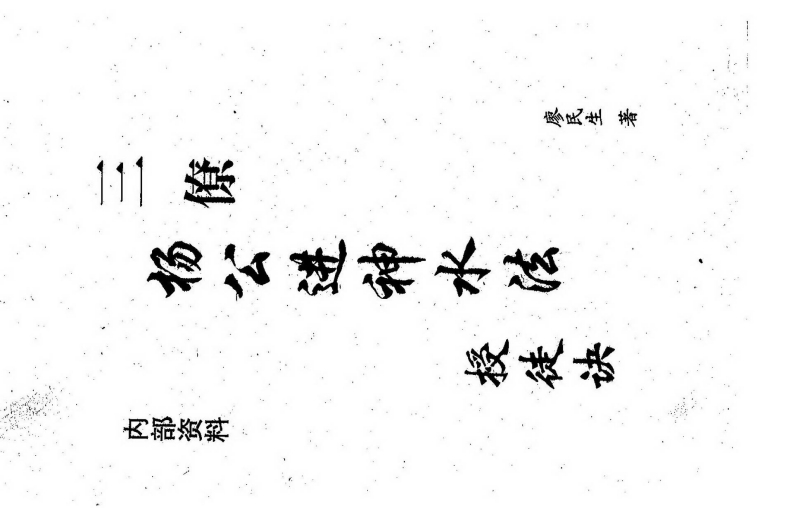 三僚
杨公进神水法
授徒诀
廖民生 著
内部资料